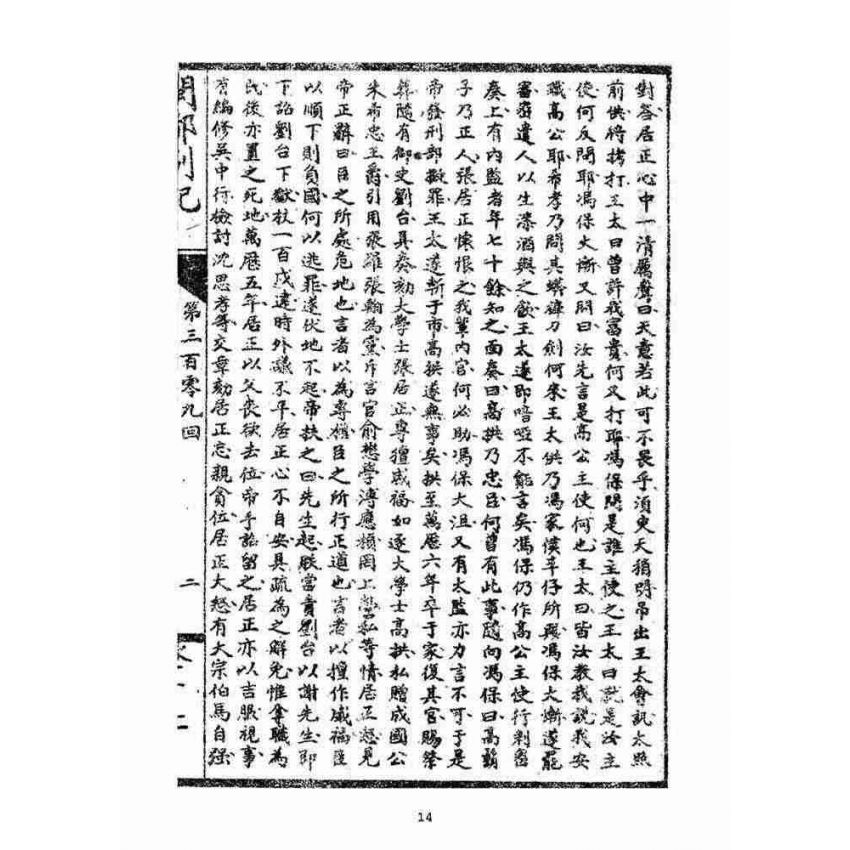 對畣居正心中一清厲聲曰天意若此可不畏乎湏東天稍明吊出王太會訊太照
前供將拷打王太曰曾許我富貴何又打耶馮保問是誰主使之王太曰就是汝主
使何反問耶馮保大慚又問曰汝先言是高公主使何也王太曰皆汝教我說我安
職高公耶希孝乃問其蟒褲刀劍何來王太供乃馮家僕辛仔所與馮保大慚遂罷
審密遣人以生漆酒與之飲王太遂即喑啞不能言矣馮保仍作高公主使行刺
奏上有內監者年七十餘知之面奏曰高拱乃忠臣何曾有此事隨向馮保曰高鬍
子乃正人張居正懷恨之我輩內官何必助馮保大沮又有太監亦力言不可于是
帝發刑部擬罪王太遂斬于市高拱遂無事矣拱至萬曆六年卒于家復其官賜祭
葬隨有御史劉台具奏劾大學士張居正專擅威福如逐大學士高拱私贈成國公
朱希忠王爵引用張雄張翰為黨斥言官俞懋學溥應禎罔上營私等情居正怒見
帝正辭曰臣之所處危地也言者以為專權臣之所行正道也言者以擅作威福臣
以順下則負國何以逃罪遂伏地不起帝扶之曰先生起朕當責劉台以謝先生即
下詔劉台下獄杖一百戍邊時外議不平居正心不自安具疏為之解免惟拿職為
民後亦置之死地萬曆五年居正以父喪欲去位帝手詔留之居正亦以吉服視事
有編修吳中行檢討沈思孝等交章劾居正忘親貪位居正大怒有大宗伯馬自强
閩都別記
第三百零九回
二
14